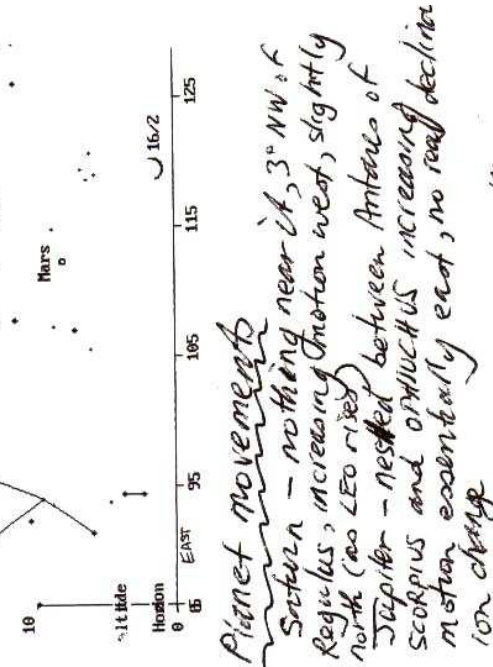 10
Mars
16/2
Altitude
Horizon
0
85 95 105 115 125
EAST
Planet movements
Saturn – nothing near it, 3° NW of
Regulus, increasing motion west, slightly
north (as LEO rises)
Jupiter – nestled between Antares of
SCORPIUS and OPHIUCHUS increasing
motion essentially east, no real declina
ion change